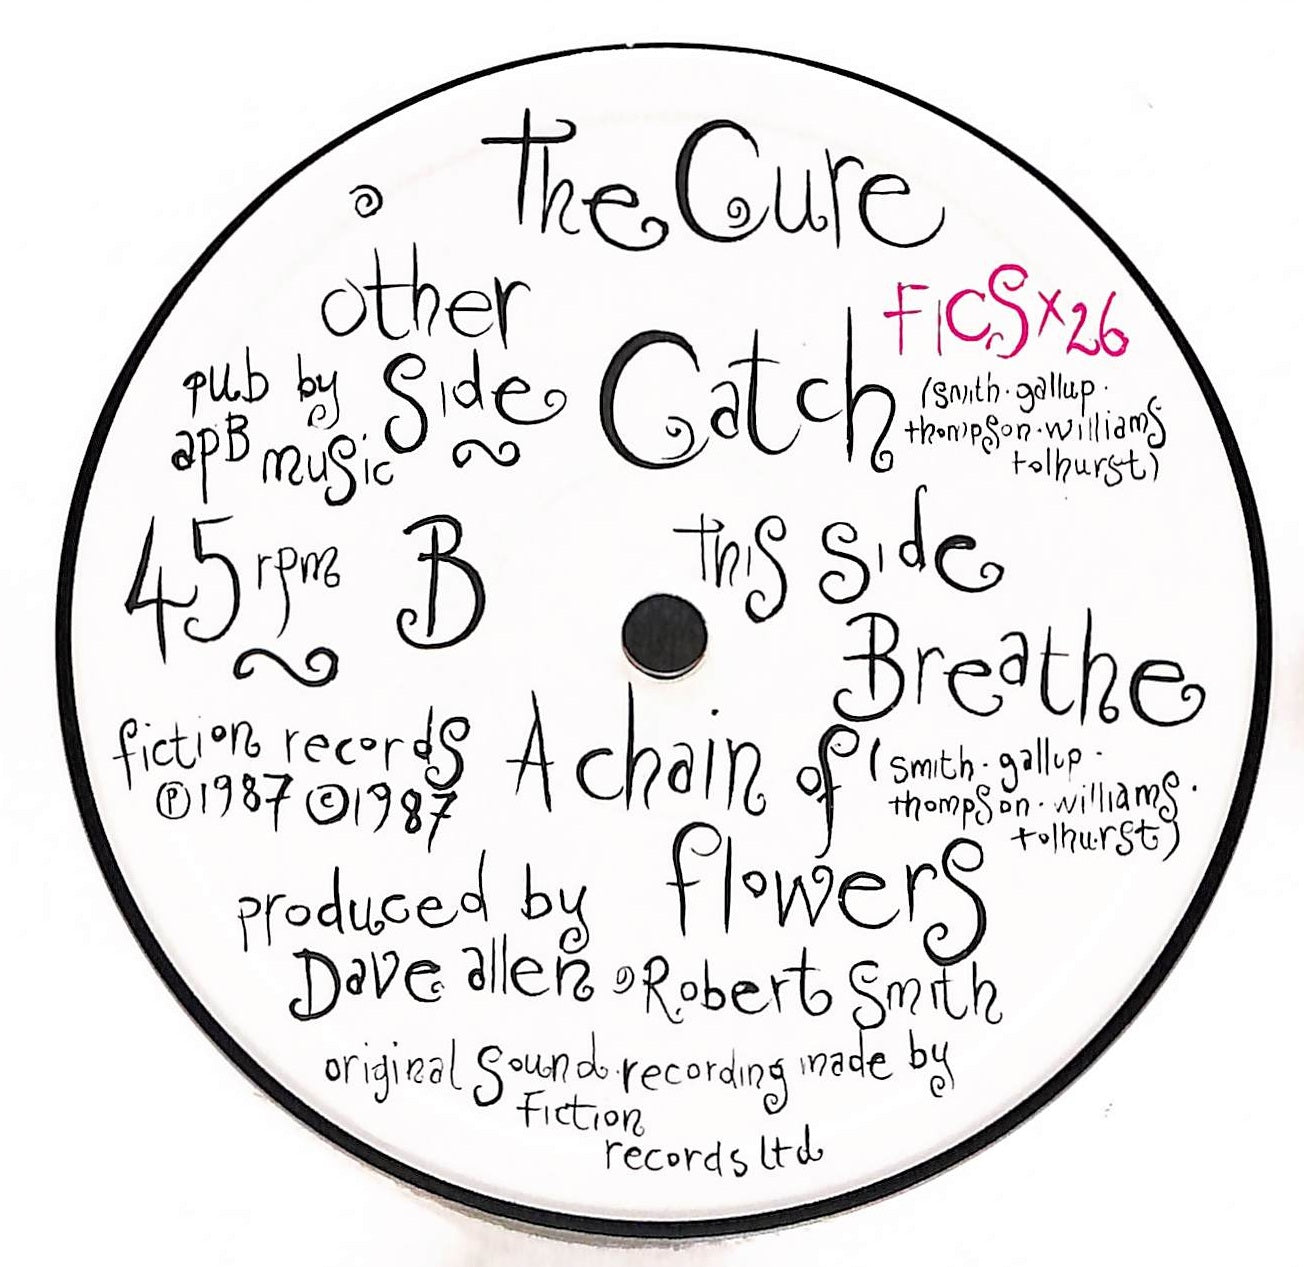 The Cure
other
Side
Catch
FICSX26
(smith·gallup·
thompson·williams
tolhurst)
pub by
apB
music
45 rpm
B
this side
Breathe
A chain of
flowers
(smith·gallup·
thompson·williams·
tolhurst)
fiction records
Ⓟ1987 ©1987
produced by
Dave allen & Robert Smith
original sound recording made by
fiction
records ltd